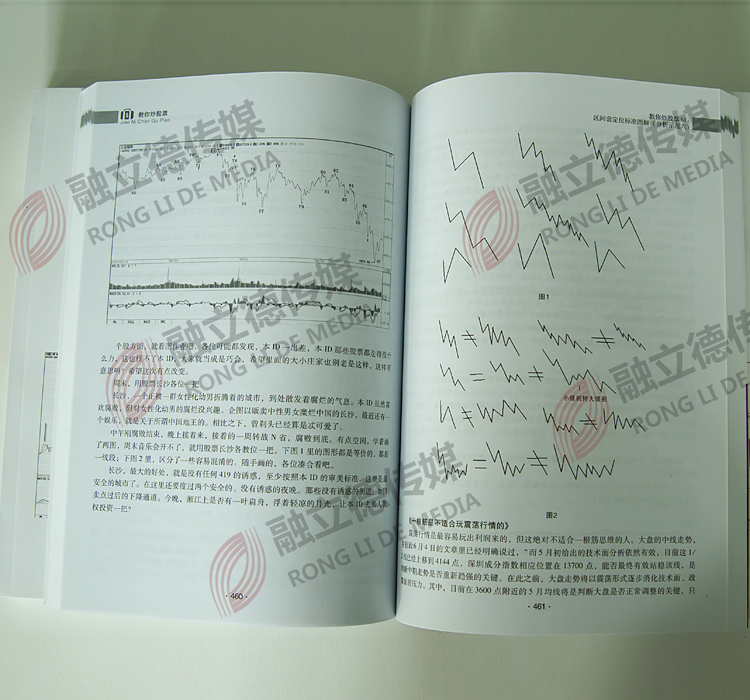 教你炒股票
Jiao Ni Chao Gu Piao
融立德传媒
RONG LI DE MEDIA
个股方面，就看图作业吧。各位可能都发现，本 ID 一出差，本 ID 那些股票都走得没什
么力，这也怪不了本 ID，大家就当成是巧合。希望里面的大小庄家也别老是这样，这样有
意思吗？希望这次有点改变。
周末，用股票长沙各位一把
长沙，一个正被一群女性化幼男折腾着的城市，到处散发着腐烂的气息。本 ID 虽然喜
欢腐败，但对女性化幼男的腐烂没兴趣。企图以贩卖中性男女糜烂中国的长沙，最近还有一
个娱乐，就是关于所谓中国地王的。相比之下，曾剃头已经算是忒可爱了。
中午刚腐败结束，晚上接着来，接着的一周转战 N 省，腐败到底。有点空闲，学着画
了两图，周末音乐会开不了，就用股票长沙各教位一把。下图 1 里的图形都是等价的，都是
一线段；下图 2 里，区分了一些容易混淆的。随手画的，各位凑合看吧。
长沙，最大的好处，就是没有任何 419 的诱惑，至少按照本 ID 的审美标准，这绝是最
安全的城市了。在这里还要度过两个安全的、没有诱惑的夜晚。那些没有诱惑的街道，如
卖点过后的下降通道。今晚，湘江上是否有一叶扁舟，浮着轻凉的月光，让本 ID 去
权投资一把？
· 460 ·
教你炒股票
区间套定位标准图解（分析示范六）
融立德传媒
RONG LI DE MEDIA
图1
融立德传媒
RONG LI DE MEDIA
小级别转大级别
图2
融立德传媒
RONG LI DE MEDIA
《一根筋是不适合玩震荡行情的》
震荡行情是最容易玩出利润来的，但这绝对不适合一根筋思维的人。大盘的中线走势，
6 月 4 日的文章里已经明确说过，“而 5 月初给出的技术面分析依然有效，目前这 1/
已经上移到 4144 点，深圳成分指数相应位置在 13700 点，能否最终有效站稳该线，是
判断中期走势是否重新趋强的关键。在此之前，大盘走势将以震荡形式逐步消化技术面、故
的压力。其中，目前在 3600 点附近的 5 月均线将是判断大盘是否正常调整的关键，只
· 461 ·